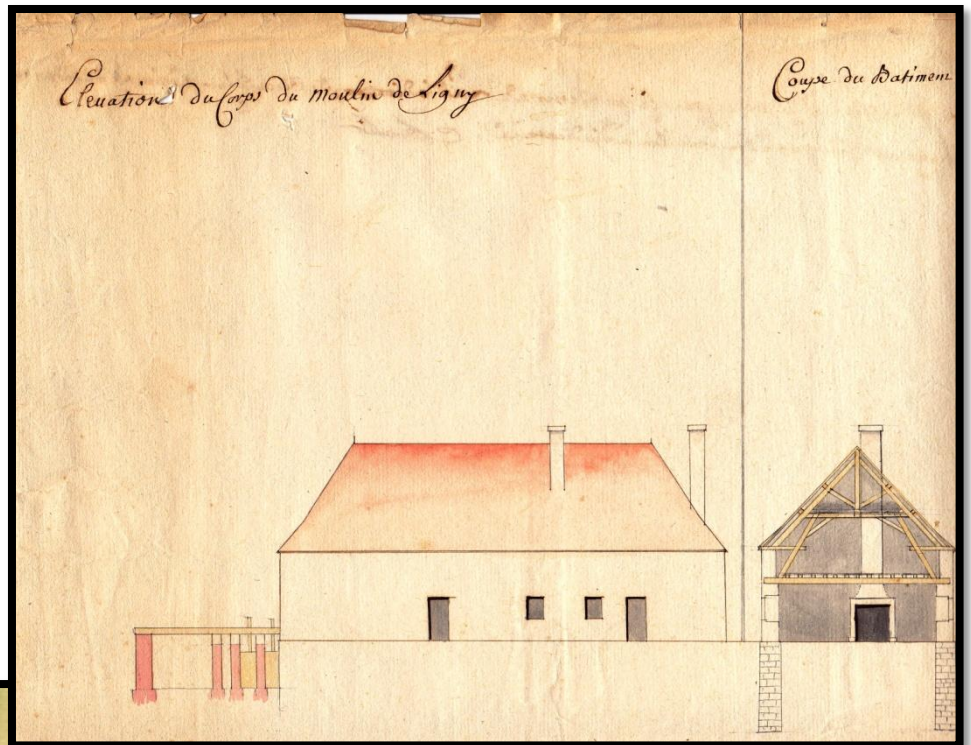 Elevation du Corps du moulin de Ligny
Coupe du Batiment